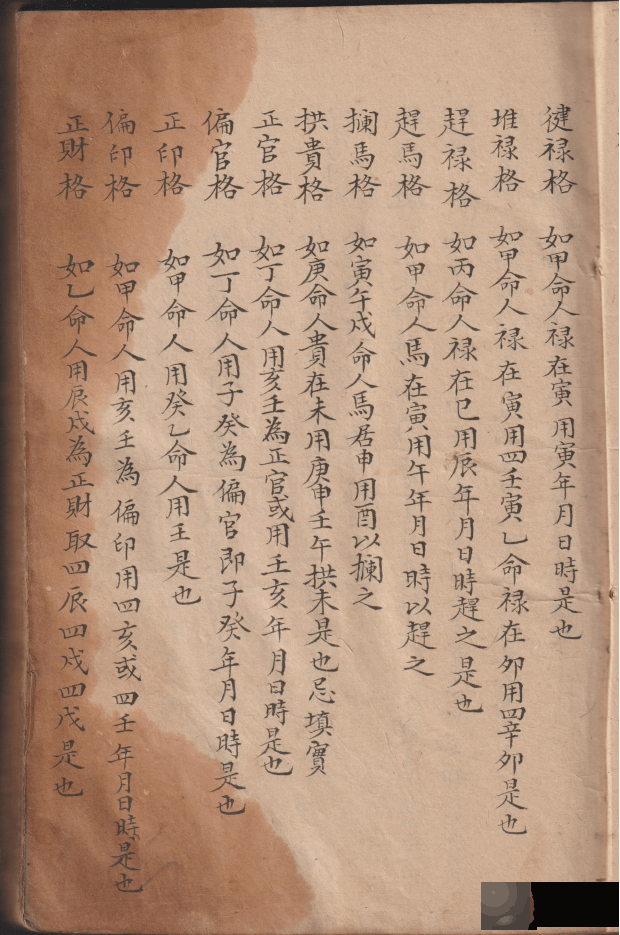 健禄格 如甲命人禄在寅用寅年月日時是也
堆禄格 如甲命人禄在寅用四壬寅乙命禄在卯用四辛卯是也
趕禄格 如丙命人禄在巳用辰年月日時趕之是也
趕馬格 如甲命人馬在寅用午年月日時以趕之
攔馬格 如寅午戌命人馬居申用酉以攔之
拱貴格 如庚命人貴在未用庚申壬午拱未是也忌填實
正官格 如丁命人用亥壬為正官或用壬亥年月日時是也
偏官格 如丁命人用子癸為偏官即子癸年月日時是也
正印格 如甲命人用癸乙命人用壬是也
偏印格 如甲命人用亥壬為偏印用四亥或四壬年月日時是也
正財格 如乙命人用辰戌為正財取四辰四戌四戊是也